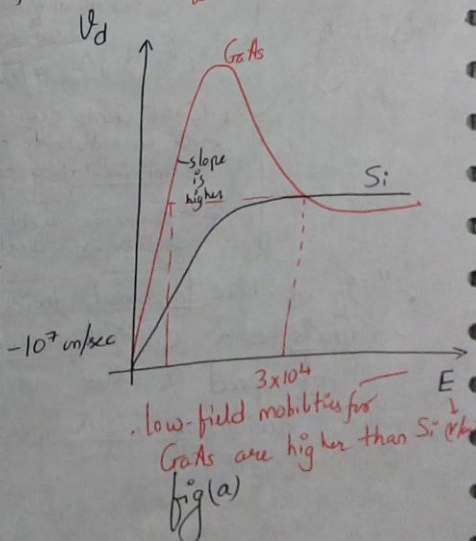 Vd
GaAs
slope
is
higher
Si
~10⁷ cm/sec
3x10⁴
E
. low-field mobilties for
GaAs are higher than Si
fig(a)